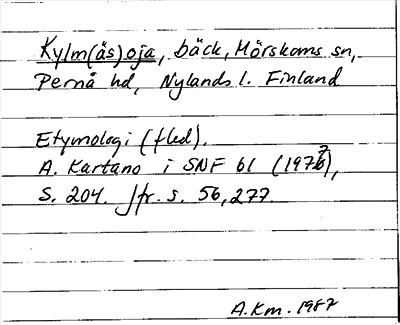 Kylm(äs)oja, bäck, Mörskoms sn,
Pernå hd, Nylands l. Finland
Etymologi (fled).
A. Kartano i SNF 61 (1977),
S. 204. Jfr. s. 56, 277.
A.Km. 1987